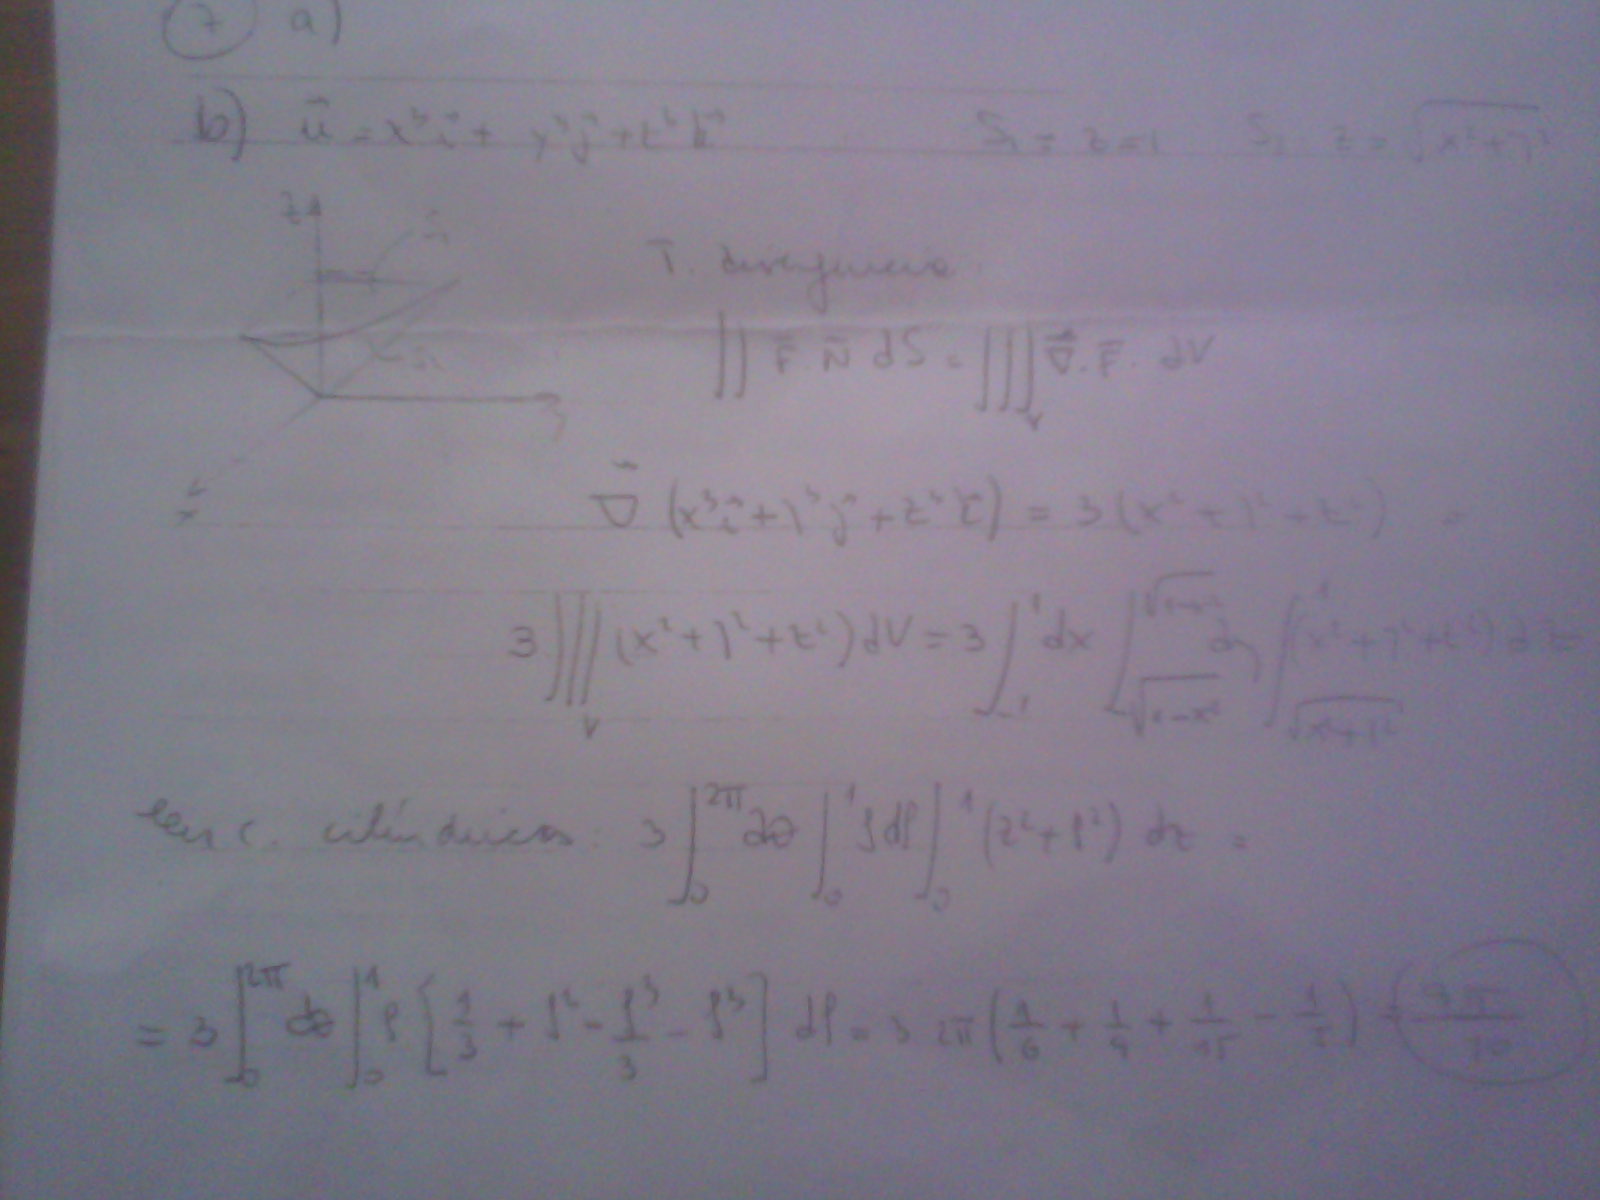 7 a)
b) u⃗ = x³i + y³j + z³k S₁ = z=1 S₂: z = √(x²+y²)
z
S₁
S₂
y
x
T. divergencia
∬ F̄ N̄ dS = ∭_V ∇⃗·F̄ · dV
∇⃗ (x³i + y³j + z³k) = 3(x²+y²+z²) =
3∭_V (x²+y²+z²) dV = 3∫_{-1}^{1} dx ∫_{-√(1-x²)}^{√(1-x²)} dy ∫_{√(x²+y²)}^{1} (x²+y²+z²) dz =
en c. cilíndricas: 3∫_0^{2π} dθ ∫_0^1 ρdρ ∫_0^1 (z²+ρ²) dz =
= 3∫_0^{2π} dθ ∫_0^1 ρ [1/3 + ρ² - ρ³/3 - ρ³] dρ = 3 2π (1/6 + 1/4 + 1/15 - 1/5) = 9π/10